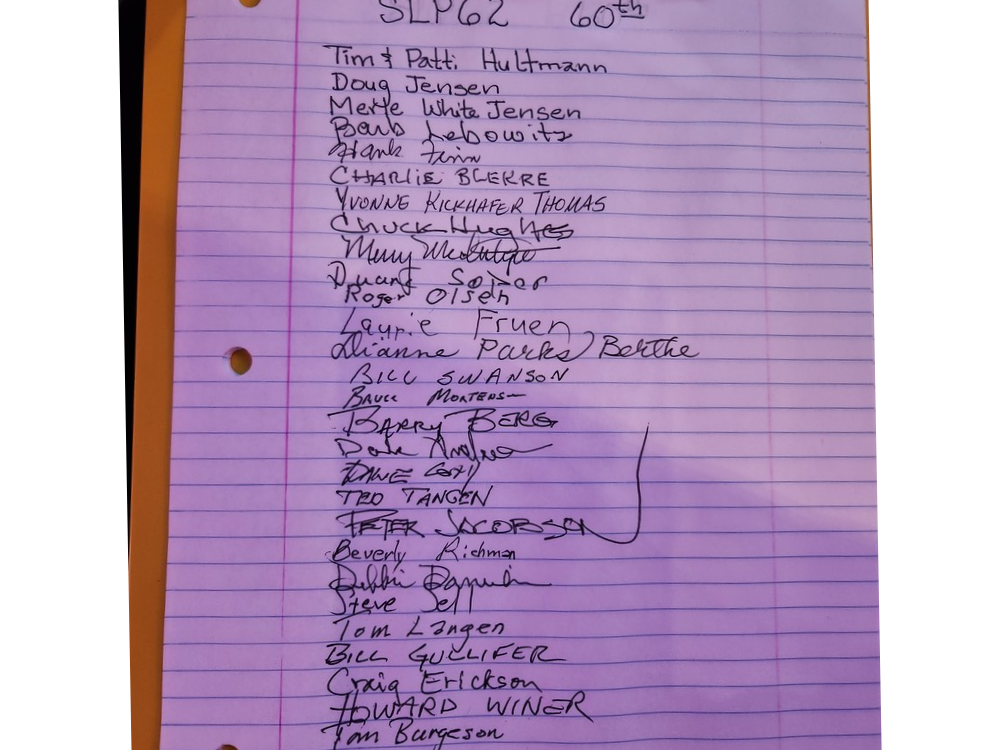 SLP62 60th
Tim & Patti Hultmann
Doug Jensen
Merle White Jensen
Barb Lebowitz
Hank Finn
CHARLIE BLEKRE
YVONNE KICKHAFER THOMAS
Chuck Hughes
Duane
Roger Olsen
Laurie Fruen
Dianne Parks Berthe
BILL SWANSON
BRUCE
BARRY BERG
DAVE
TED TANGEN
PETER JACOBSON
Beverly Richman
Debbie
Steve Sell
Tom Langen
BILL GULLIFER
Craig Erickson
HOWARD WINER
Burgeson